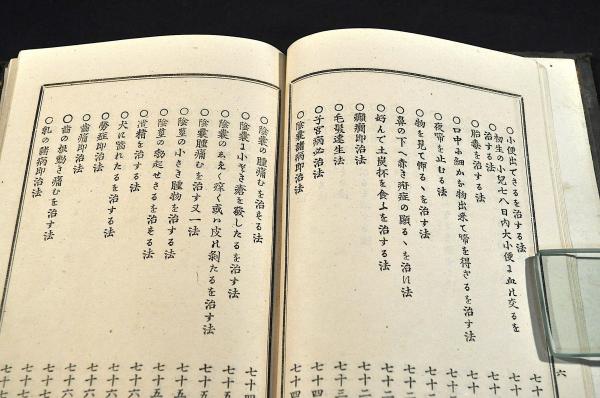 ○小便出でざるを治する法
初生の小兒七八日内大小便ま血れ交るを
治する法
○胎毒を治する法
○口中ふ細かき物出来て啼を得ざるを治する法
○夜啼を止むる法
○物を見て怖るゝを治す法
○鼻の下へ赤き疳症の顕るゝを治れ法
○好んで土炭杯を食ふを治する法
○癲癇即治法
○毛髪速生法
○子宮病即治法
○陰嚢諸病即治法
○陰嚢の腫痛むを治さる法
○陰嚢ま小さき瘡を發したるを治す法
○陰嚢のあえく痒く或ハ皮れ剥たるを治す法
○陰嚢腫痛むを治す又一法
○陰莖の小さき腫物を治する法
○陰莖の勃起せざるを治さる法
○遺精を治する法
○犬に噛れたるを治する法
○勞症即治法
○齒痛即治法
○齒の根動き痛むを治す法
○乳の諸病即治法
六
七十
七十
七十
七十二
七十二
七十三
七十三
七十四
七十四
七十四
七十五
七十五
七十五
七十六
七十六
七十六